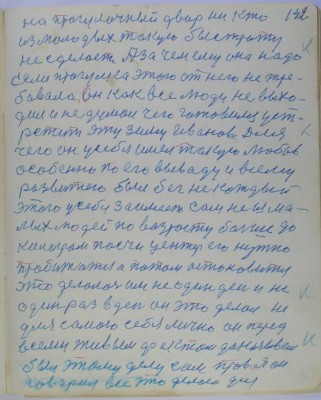 на прогулочный двор ни кто 142
из молодых такую быстроту
не сделает. А зачем ему она надо
если прогулка этого от него не тре-
бовала, он как все люди не выхо-
дил и не думал чего готовился уст-
ретить эту зиму Иванов. Для
чего он у себя имел такую любовь
особенно по его выводу и всему
развитого был бег не каждый
этого у себя заимеет сам не из ма-
лых людей по возрасту больше до
килограм почти центр его нужно
пробижатся а потом остоновится
это делолось им не один ден и не
один раз в ден он это делал не
для самого себя лично он перед
всеми живым фактом доказывал
был этому делу сам прав и он
говорил все это делал для